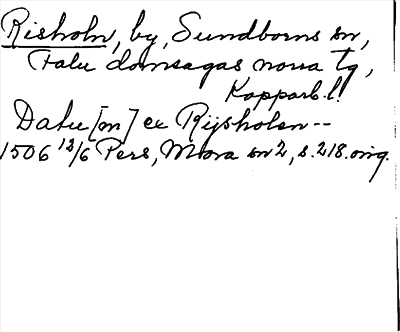 Risholn, by, Sundborns sn,
Falu domsagas norra tg,
Kopparb.l.
Datu [m] ex Rijsholen--
1506 12/6 Pers, Mora sn 2, s. 218. orig.